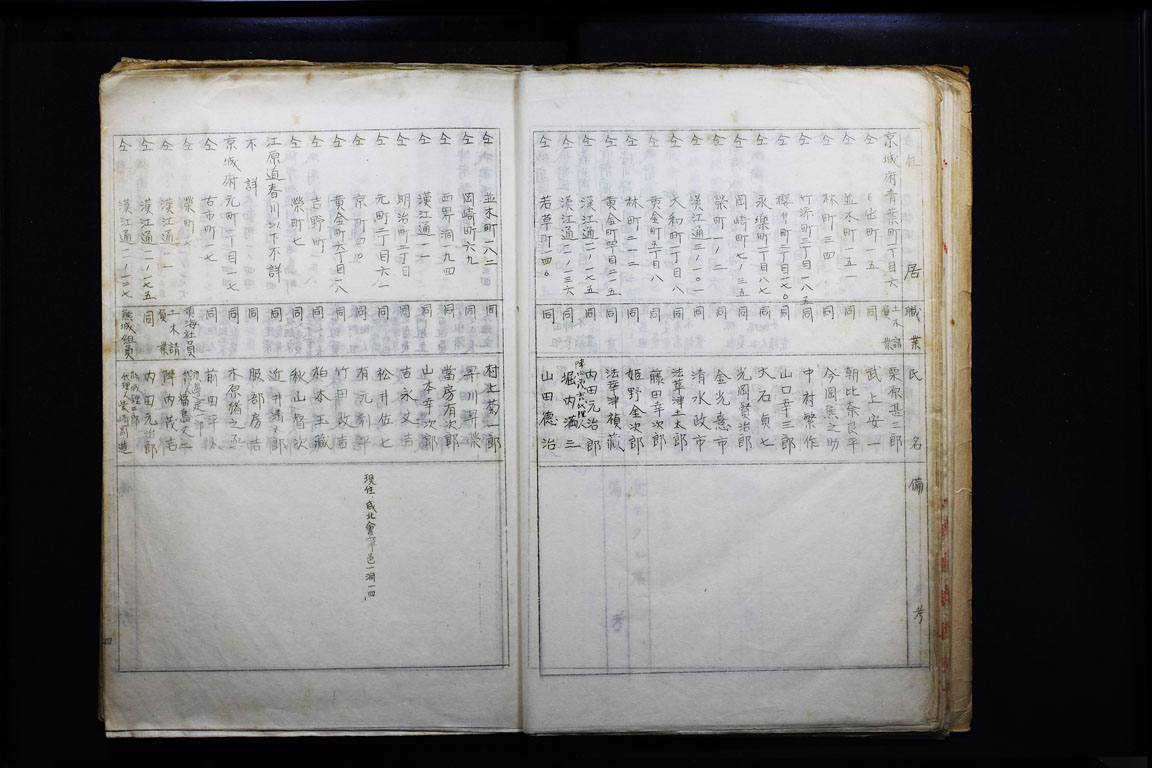 居 職業 氏名 備考
京城府青葉町一丁目六 土木請負業 栗原甚三郎
仝 同 武上安一
仝 並木町五一 同 朝比奈良平
仝 林町三四 同 今岡熊之助
仝 竹添町三丁目一八五 同 中村繁作
仝 櫻井町二丁目一七〇 同 山口幸三郎
仝 永樂町一丁目八七 同 大石貞七
仝 岡崎町七ノ三五 同 光岡賢治郎
仝 榮町一ノ二 同 金光意市
仝 漢江通三ノ一〇一 同 清水政市
仝 大和町一丁目八 同 法華津土太郎
仝 黄金町五丁目八 同 藤田幸次郎
仝 林町二一二 同 姫野金次郎
仝 黄金町四丁目二一五 同 法華津禎藏
仝 漢江通二ノ一七五 同 内田元治郎
仝 漢江通一一ノ三六 同 代理人 堀内満三
仝 若草町四〇 同 山田德治
仝 並木町一八二 同 村上菊一郎
仝 岡崎町六九 同
仝 西界洞九四 同 當房有次郎
仝 漢江通一一 同 山本幸次郎
仝 明治町二丁目 同 吉永丈吉
仝 元町二丁目六一 同 松井佐七
仝 京町一〇 同 有元利平 現住 咸北會寧邑一洞一四
仝 黄金町六丁目一八 同 竹田政吉
仝 吉野町一 同 柏木玉藏
仝 榮町七 同 秋山督次
江原道春川以下不詳 同
不詳 同 服部房吉
京城府元町二丁目一七 同 木原緒之丞
仝 古市町一七 同 前田平
仝 榮町 社員
仝 漢江通一一 土木請負業 陣内茂吉
仝 漢江通二ノ一七五 同 内田元治郎
仝 漢江通一一ノ一〇七 組員